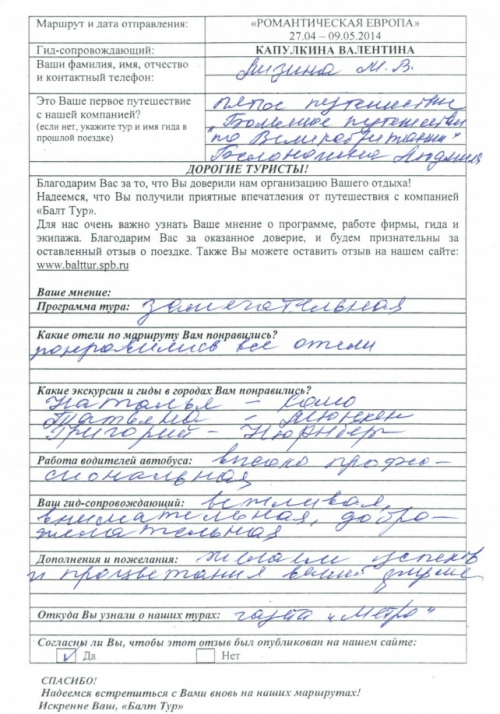 Маршрут и дата отправления: «РОМАНТИЧЕСКАЯ ЕВРОПА»
27.04 – 09.05.2014
Гид-сопровождающий: КАПУЛКИНА ВАЛЕНТИНА
Ваши фамилия, имя, отчество
и контактный телефон:
М. В.
Это Ваше первое путешествие
с нашей компанией?
(если нет, укажите тур и имя гида в
прошлой поездке)
пятое путешествие
„Большое путешествие
по Великобритании"
Людмила
ДОРОГИЕ ТУРИСТЫ!
Благодарим Вас за то, что Вы доверили нам организацию Вашего отдыха!
Надеемся, что Вы получили приятные впечатления от путешествия с компанией
«Балт Тур».
Для нас очень важно узнать Ваше мнение о программе, работе фирмы, гида и
экипажа. Благодарим Вас за оказанное доверие, и будем признательны за
оставленный отзыв о поездке. Также Вы можете оставить отзыв на нашем сайте:
www.balttur.spb.ru
Ваше мнение:
Программа тура: замечательная
Какие отели по маршруту Вам понравились?
понравились все отели
Какие экскурсии и гиды в городах Вам понравились?
Наталья – Комо
Татьяна – Мюнхен
Григорий – Нюрнберг
Работа водителей автобуса: высоко профес-
сиональная
Ваш гид-сопровождающий: вежливая,
внимательная, добро-
желательная
Дополнения и пожелания: желаем успехов
и процветания вашей фирме
Откуда Вы узнали о наших турах: газета „Метро"
Согласны ли Вы, чтобы этот отзыв был опубликован на нашем сайте:
Да Нет
СПАСИБО!
Надеемся встретиться с Вами вновь на наших маршрутах!
Искренне Ваш, «Балт Тур»